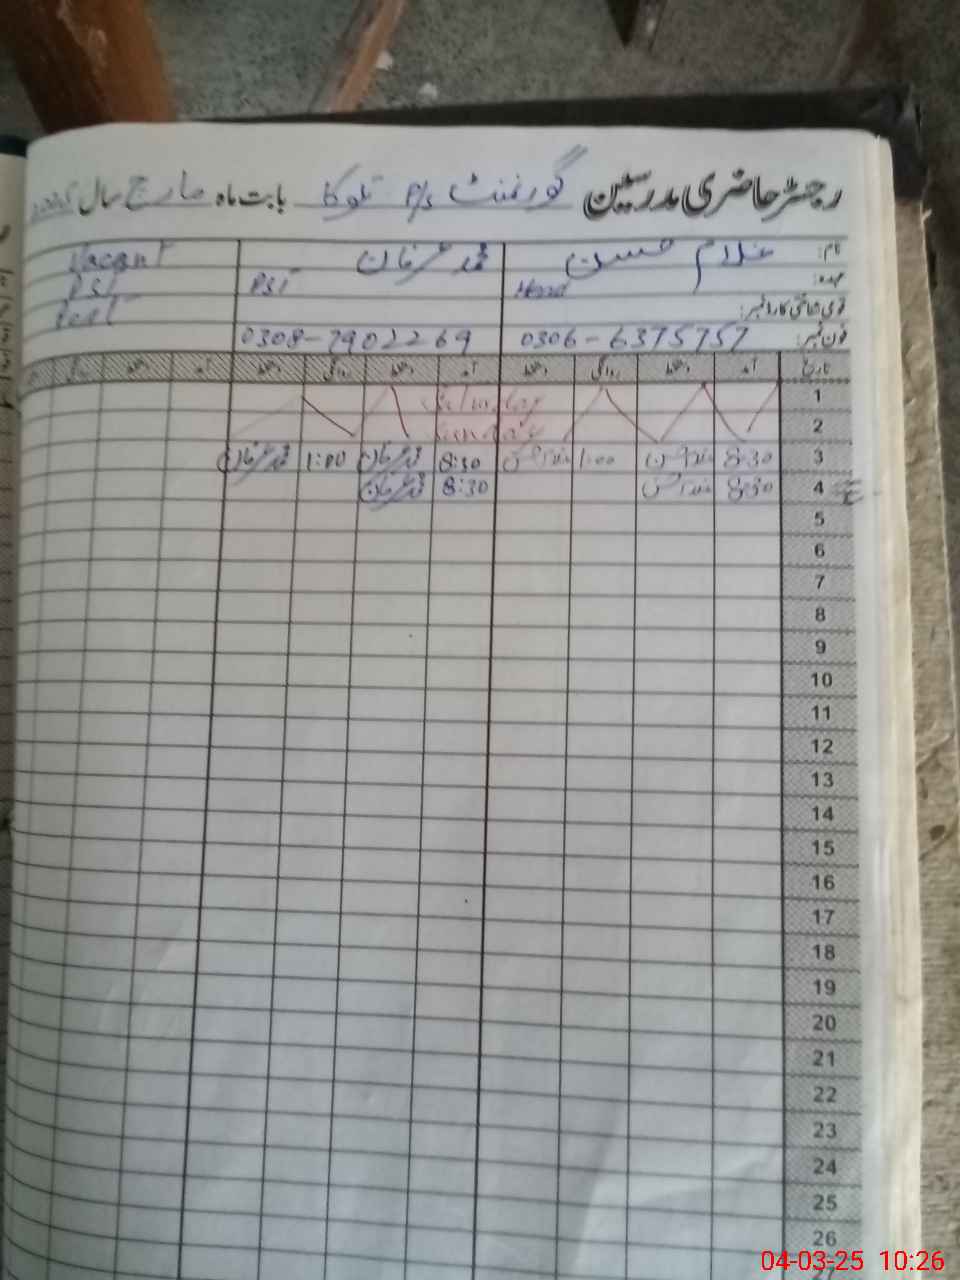 رجسٹر حاضری مدرسین گورنمنٹ P/S تلوکا بابت ماہ مارچ سال
نام: غلام حسن محمد عرفان Vacant
عہدہ: Head PST PST
قومی شناختی کارڈ نمبر: Post
فون نمبر: 0306-6375757 0308-7902269
تاریخ آمد دستخط روانگی دستخط آمد دستخط روانگی دستخط آمد دستخط روانگی
1 Saturday
2 Sunday
3 8:30 غلام حسن 1:00 غلام حسن 8:30 محمد عرفان 1:00 محمد عرفان
4 8:30 غلام حسن 8:30 محمد عرفان
5
6
7
8
9
10
11
12
13
14
15
16
17
18
19
20
21
22
23
24
25
26
27
04-03-25 10:26